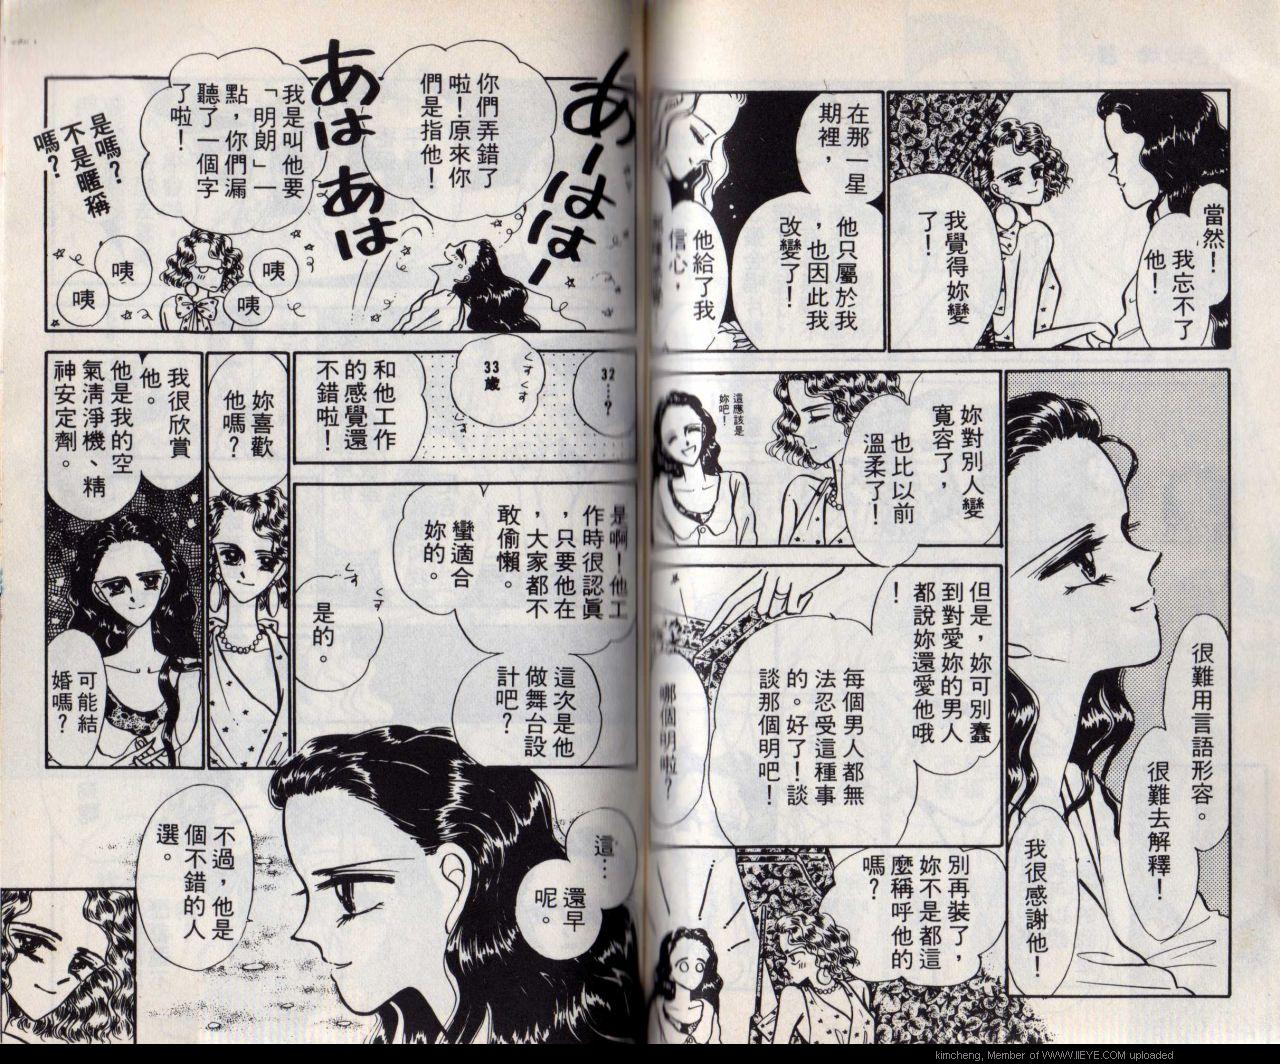 當然！
我忘不了
他！
我覺得妳變
了！
在那一星
期裡，
他只屬於我
，也因此我
改變了！
他給了我
信心，
很難用言語形容。
很難去解釋！
我很感謝他！
妳對別人變
寬容了，
也比以前
溫柔了！
這應該是
妳吧！
但是，妳可別蠢
到對愛妳的男人
都說妳還愛他哦
！
每個男人都無
法忍受這種事
的。好了！談
談那個明吧！
哪個明啦？
別再裝了，
妳不是都這
麼稱呼他的
嗎？
あーはは―
你們弄錯了
啦！原來你
們是指他！
あはあは
我是叫他要
「明朗」一
點，你們漏
聽了一個字
了啦！
是嗎？
不是暱稱
嗎？
咦
咦
咦
咦
32…？
くすくす
33歲
和他工作
的感覺還
不錯啦！
是啊！他工
作時很認眞
，只要他在
，大家都不
敢偷懶。
蠻適合
妳的。
這次是他
做舞台設
計吧？
くすくす
是的。
妳喜歡
他嗎？
我很欣賞
他。
他是我的空
氣清淨機、精
神安定劑。
可能結
婚嗎？
這…
還早
呢。
不過，他是
個不錯的人
選。
kimcheng, Member of WWW.IIEYE.COM uploaded